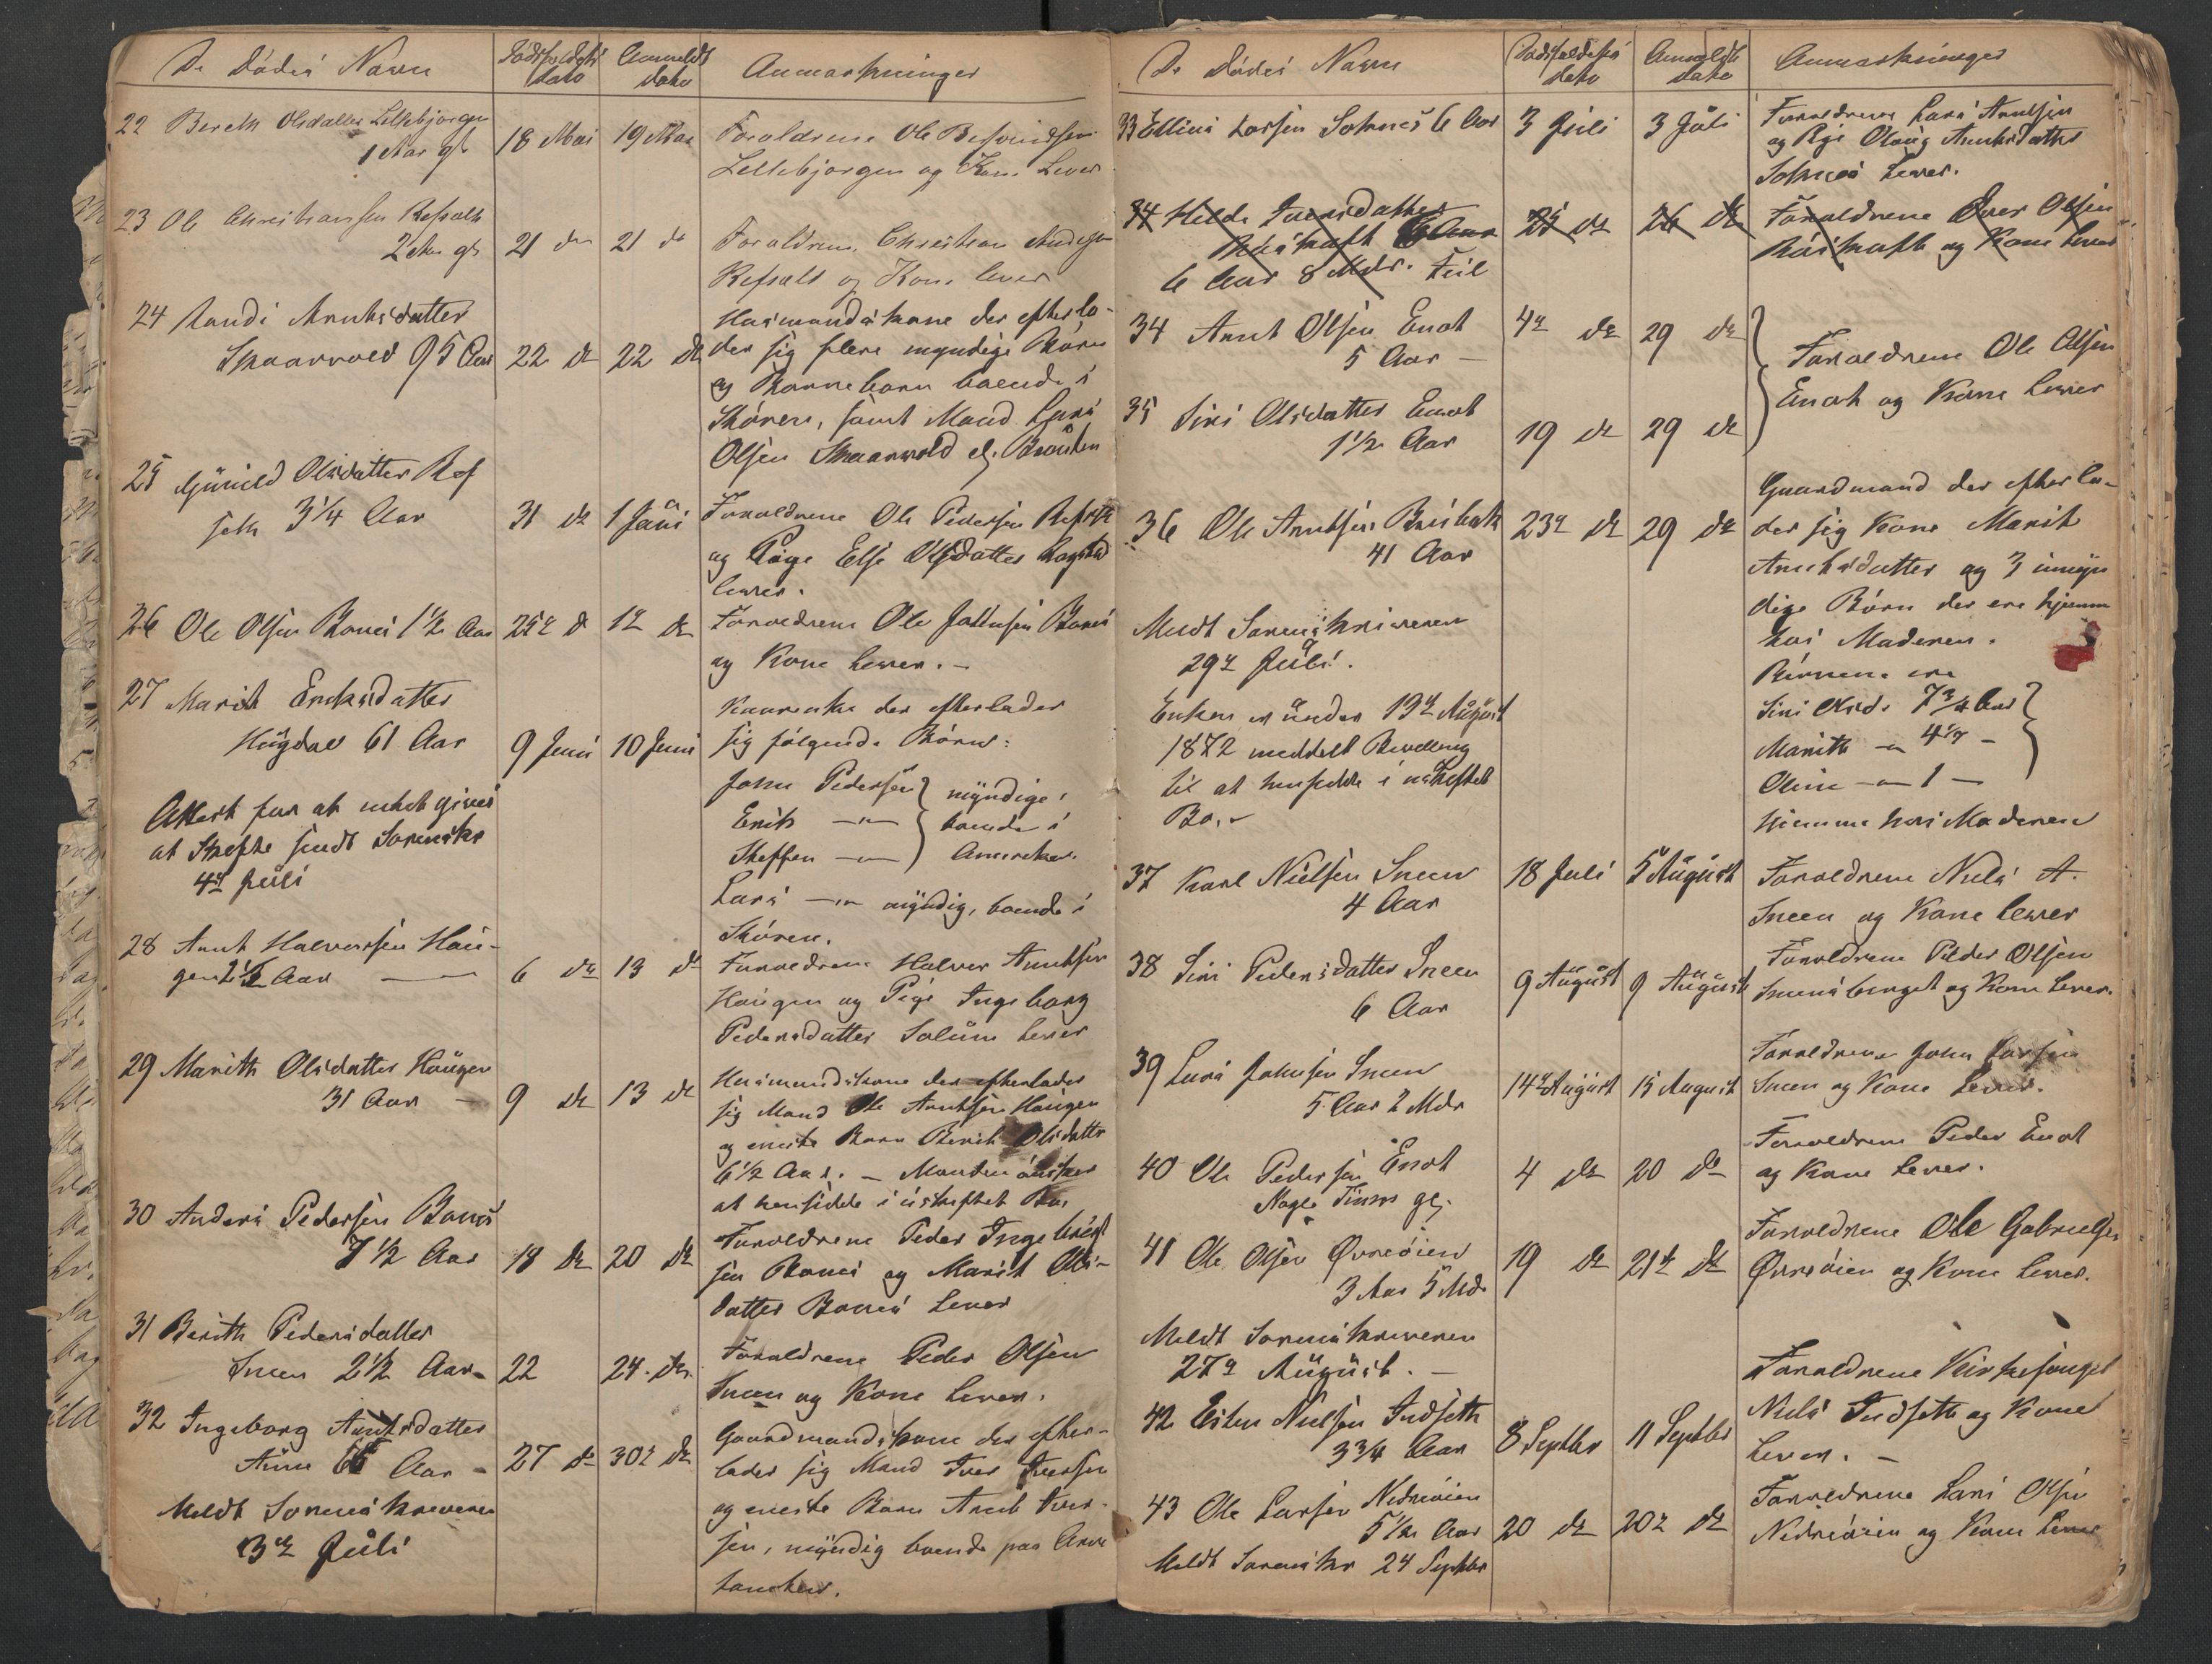 De Dödes Navn
Dödsfaldets dato
Anmeldt dato
Anmærkninger
22 Bereth Olsdatter Lillebjörgen
1 Aar gl
18 Mai
19 Mai
Forældrene Ole
Lillebjörgen og Kone Lever
23 Ole Christiansen Refsalt
2 Aar gl
21 do
21 do
Forældrene Christian
Refsalt og Kone lever
24 Randi Arntsdatter
Skaarvold 95 Aar
22 de
22 de
Husmandskone der efterla-
der sig flere myndige Börn
og Barnebarn boende i
Stören, samt Mand Lars
Olsen Skaarvold
25 Gunild Olsdatter Ref
seth 3 1/4 Aar
31 de
1 Juni
Forældrene Ole Pedersen Refseth
og Pige Else Olsdatter
lever.
26 Ole Olsen Bones 1 1/2 Aar
25de d
1de de
Forældrene Ole Johnsen Bones
og Kone Lever. –
27 Marit Eriksdatter
Hugdal 61 Aar
9 Juni
10 Juni
Kaarenke der efterlader
sig fölgende Börn:
John Pedersen } myndige,
Erik –"– } boende i
Steffen –"– } Amerika.
Lars –"– myndig, boende i
Stören.
Attest for at intet gives
at Skifte sendt Sorenskr
4de Juli
28 Arnt Halvorsen Hau-
gen 2 1/2 Aar
6 de
13 d
Forældrene Halvor Arntsen
Haugen og Pige Ingeborg
Pedersdatter Solum Lever
29 Marith Olsdatter Haugen
31 Aar –
9 de
13 de
Husmandskone der efterlader
sig Mand Ole Arntsen Haugen
og eneste Barn Berit Olsdatter
6 1/2 Aar. – Manden önsker
at hensidde i uskiftet Bo
30 Anders Pedersen Bones
7 1/2 Aar
18 de
20 de
Forældrene Peder Ingebrigt
sen Bones og Marit Ols-
datter Bones Lever
31 Berith Pedersdatter
Sneen 2 1/2 Aar
22
24 de
Forældrene Peder Olsen
Sneen og Kone Lever.
32 Ingeborg Arntsdatter
Aune Aar –
27 de
30te de
Gaardmandskone der efter-
lader sig Mand Iver Iversen
og eneste Barn Arnt Iver-
sen, myndig boende paa Aune
Meldt Sorenskriveren
3de Juli
De Dödes Navn
Dödsfaldets dato
Anmeldt dato
Anmærkninger
33 Ellius Larsen Soknes 6 Aar
3 Juli
3 Juli
Forældrene Lars Arntsen
og Pige Olaug Arntsdatter
Soknes Lever.
34 Hilde Iversdatter
6 Aar 8 Mdr. Feil
25 de
26 de
Forældrene Iver Olsen
og Kone Lever
34 Arnt Olsen Enot
5 Aar –
4de de
29 de
Forældrene Ole Olsen
Enot og Kone Lever
35 Siri Olsdatter Enot
1 1/2 Aar
19 de
29 de
36 Ole Arntsen
41 Aar
23de de
29 de
Gaardmand der efterla-
der sig Kone Marit
Arntsdatter og 3 umyn
dige Börn der ere hjemme
hos Moderen.
Börnene ere
Siri Olsd. 7 3/4 Aar
Marith –"– 4 –
Oline –"– 1 –
hjemme hos Moderen
Meldt Sorenskriveren
29de Juli.
Enken er under 19de August
1872 meddelt Bevilling
til at hensidde i uskiftet
Bo. –
37 Karl Nielsen Sneen
4 Aar
18 Juli
5 August
Forældrene Nils A.
Sneen og Kone Lever
38 Siri Pedersdatter Sneen
6 Aar
9 August
9 August
Forældrene Peder Olsen
og Kone Lever.
39 Lars Johnsen Sneen
5 Aar 2 Mdr
14de August
15 August
Forældrene John Larsen
Sneen og Kone Lever.
40 Ole Pedersen Enot
Nogle Timer gl.
4 de
20 de
Forældrene Peder Enot
og Kone Lever.
41 Ole Olsen Övreöien
3 Aar 5 Mdr
19 de
21de de
Forældrene Ole Gabrielsen
Övreöien og Kone Lever.
Meldt Sorenskriveren
27de August. –
42 Esten Nielsen Indseth
3 3/4 Aar
8 Septbr
11 Septbr
Forældrene Kirkesanger
Nils Indseth og Kone
Lever. –
43 Ole Larsen Nedreöien
5 1/2 Aar
20 de
20de de
Forældrene Lars Olsen
Nedreöien og Kone Lever
Meldt Sorenskr 24 Septbr